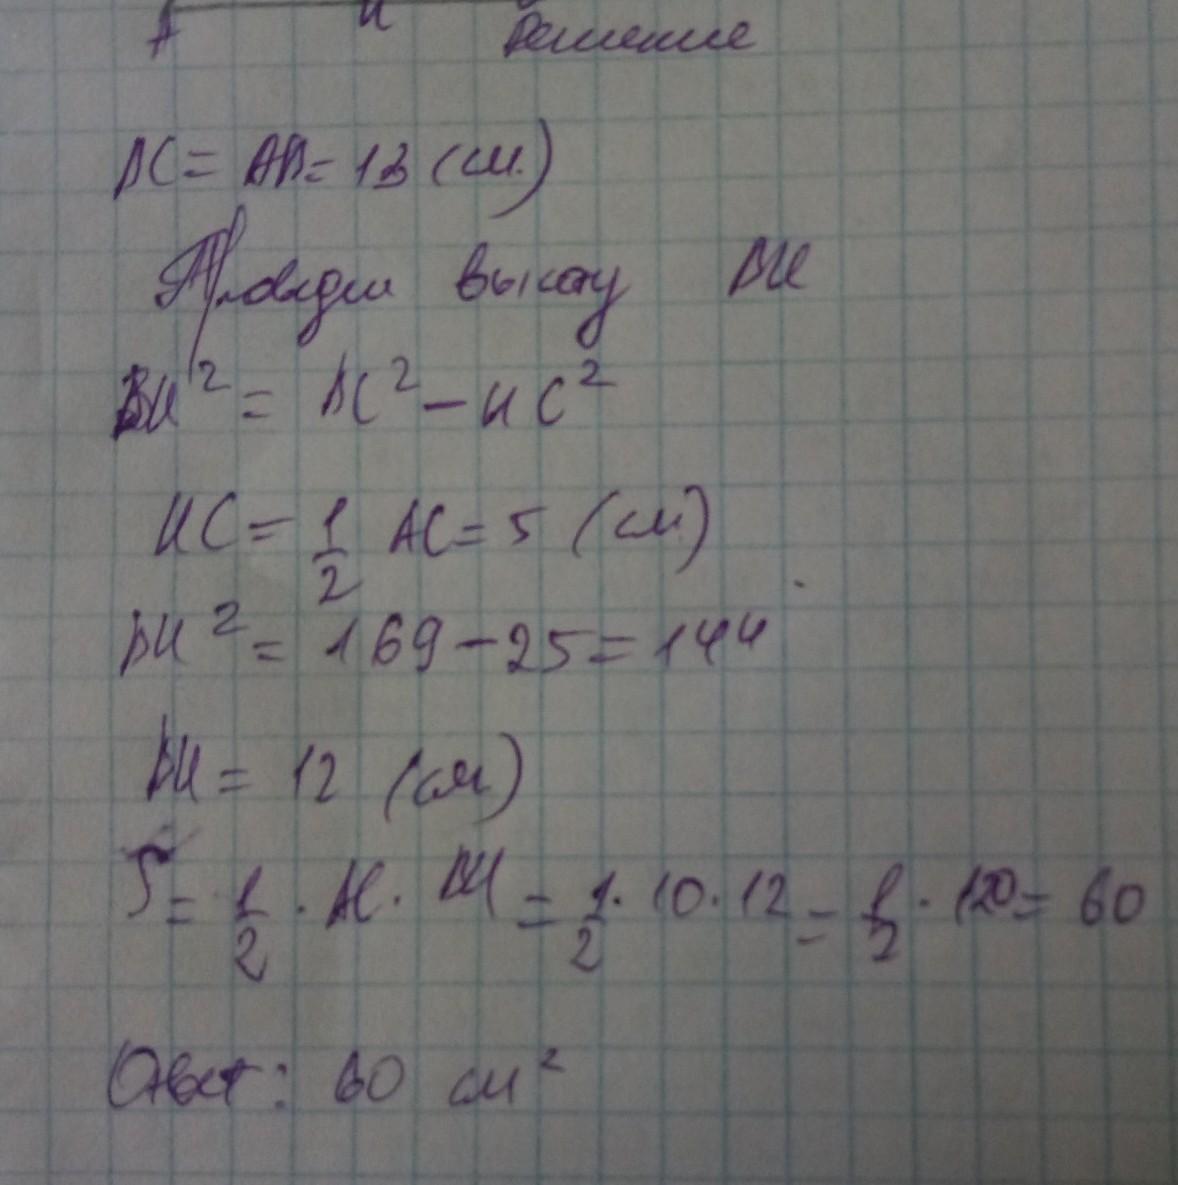 A H
Решение
BC = AB = 13 (см.)
Проведем высоту BH
BH² = BC² - HC²
HC = 1/2 AC = 5 (см)
BH² = 169 - 25 = 144
BH = 12 (см.)
S = 1/2 · AC · BH = 1/2 · 10 · 12 = 1/2 · 120 = 60
Ответ: 60 см²